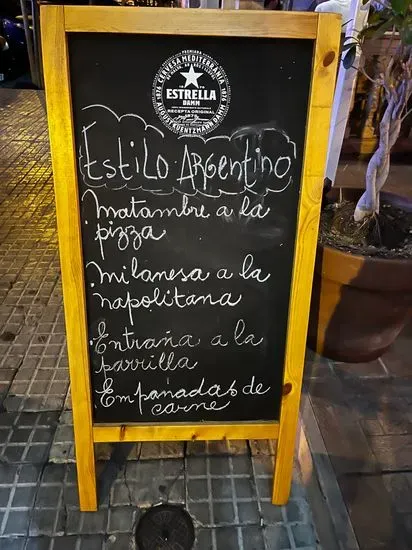 PREMIADA
CERVESA MEDITERRÀNIA
1876
1876
ESTRELLA
DAMM
RECEPTA ORIGINAL
1876
AUGUST KUENTZMANN DAMM
Estilo Argentino
matambre a la
pizza
milanesa a la
napolitana
Entraña a la
parrilla
Empanadas de
carne